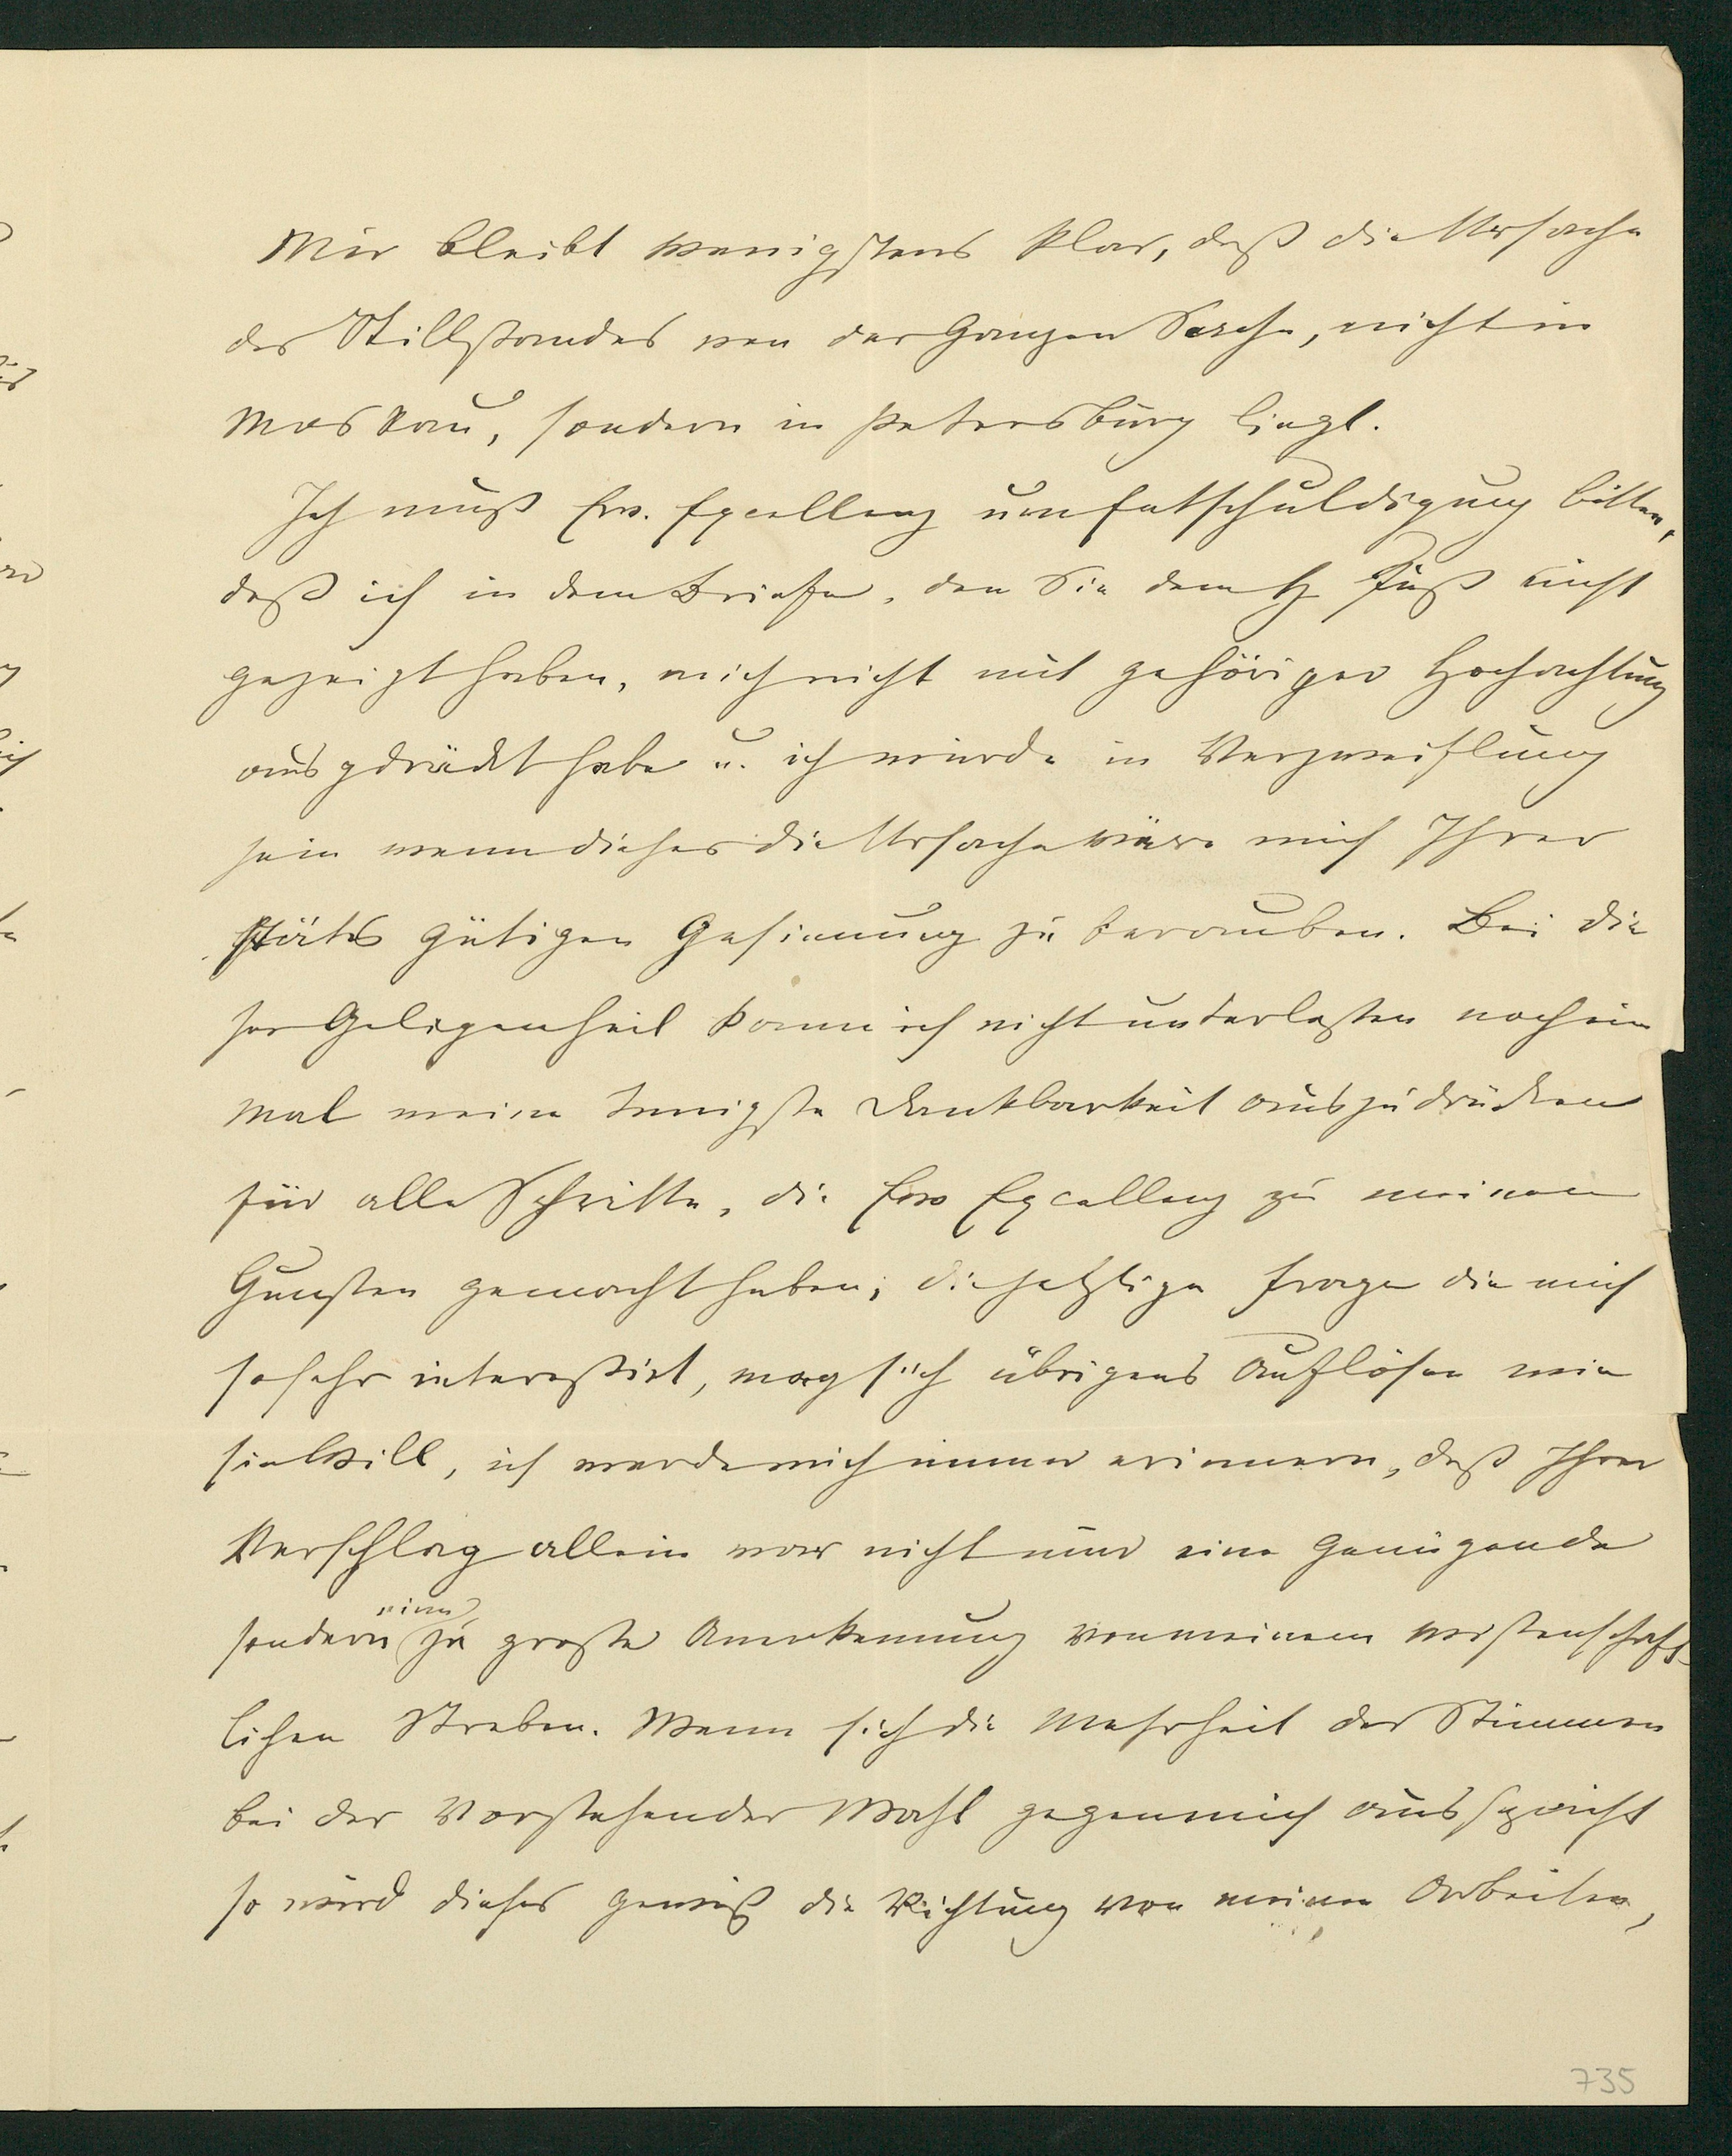 Mir bleibt wenigstens klar, daß die Ursache
des Stillstandes von der ganzen Sache, nicht in
Moskau, sondern in Petersburg liegt.
Ich muß Ew. Excellenz um Entschuldigung bitten,
daß ich in dem Briefe, den Sie dem H Fuß nicht
gezeigt haben, mich nicht mit gehöriger Hochachtung
ausgdrückt habe u. ich würde in Verzweiflung
sein wenn dieses die Ursache wäre mich Ihrer
stäts gütigen Gesinnung zu berauben. Bei die
ser Geligenheit kann ich nicht unterlaßen noch ein
mal meine innigste Dankbarkeit auszudrücken
für alle Schritte, die Ew Excellenz zu meinen
Gunsten gemacht haben; die jetztige Frage die mich
so sehr intereßirt, mag sich übrigens auflösen wie
sie will, ich werde mich immer erinnern, daß Ihrer
Verschlag allein war nicht nur eine genügende
sondern eine zu große Anerkennung von meinem wißenschaft-
lichen Streben. Wenn sich die Mehrheit der Stimmen
bei der Vorstehender Wahl gegen mich ausspricht
so wird dieses gewiß die Richtung von meinen Arbeiten,
735